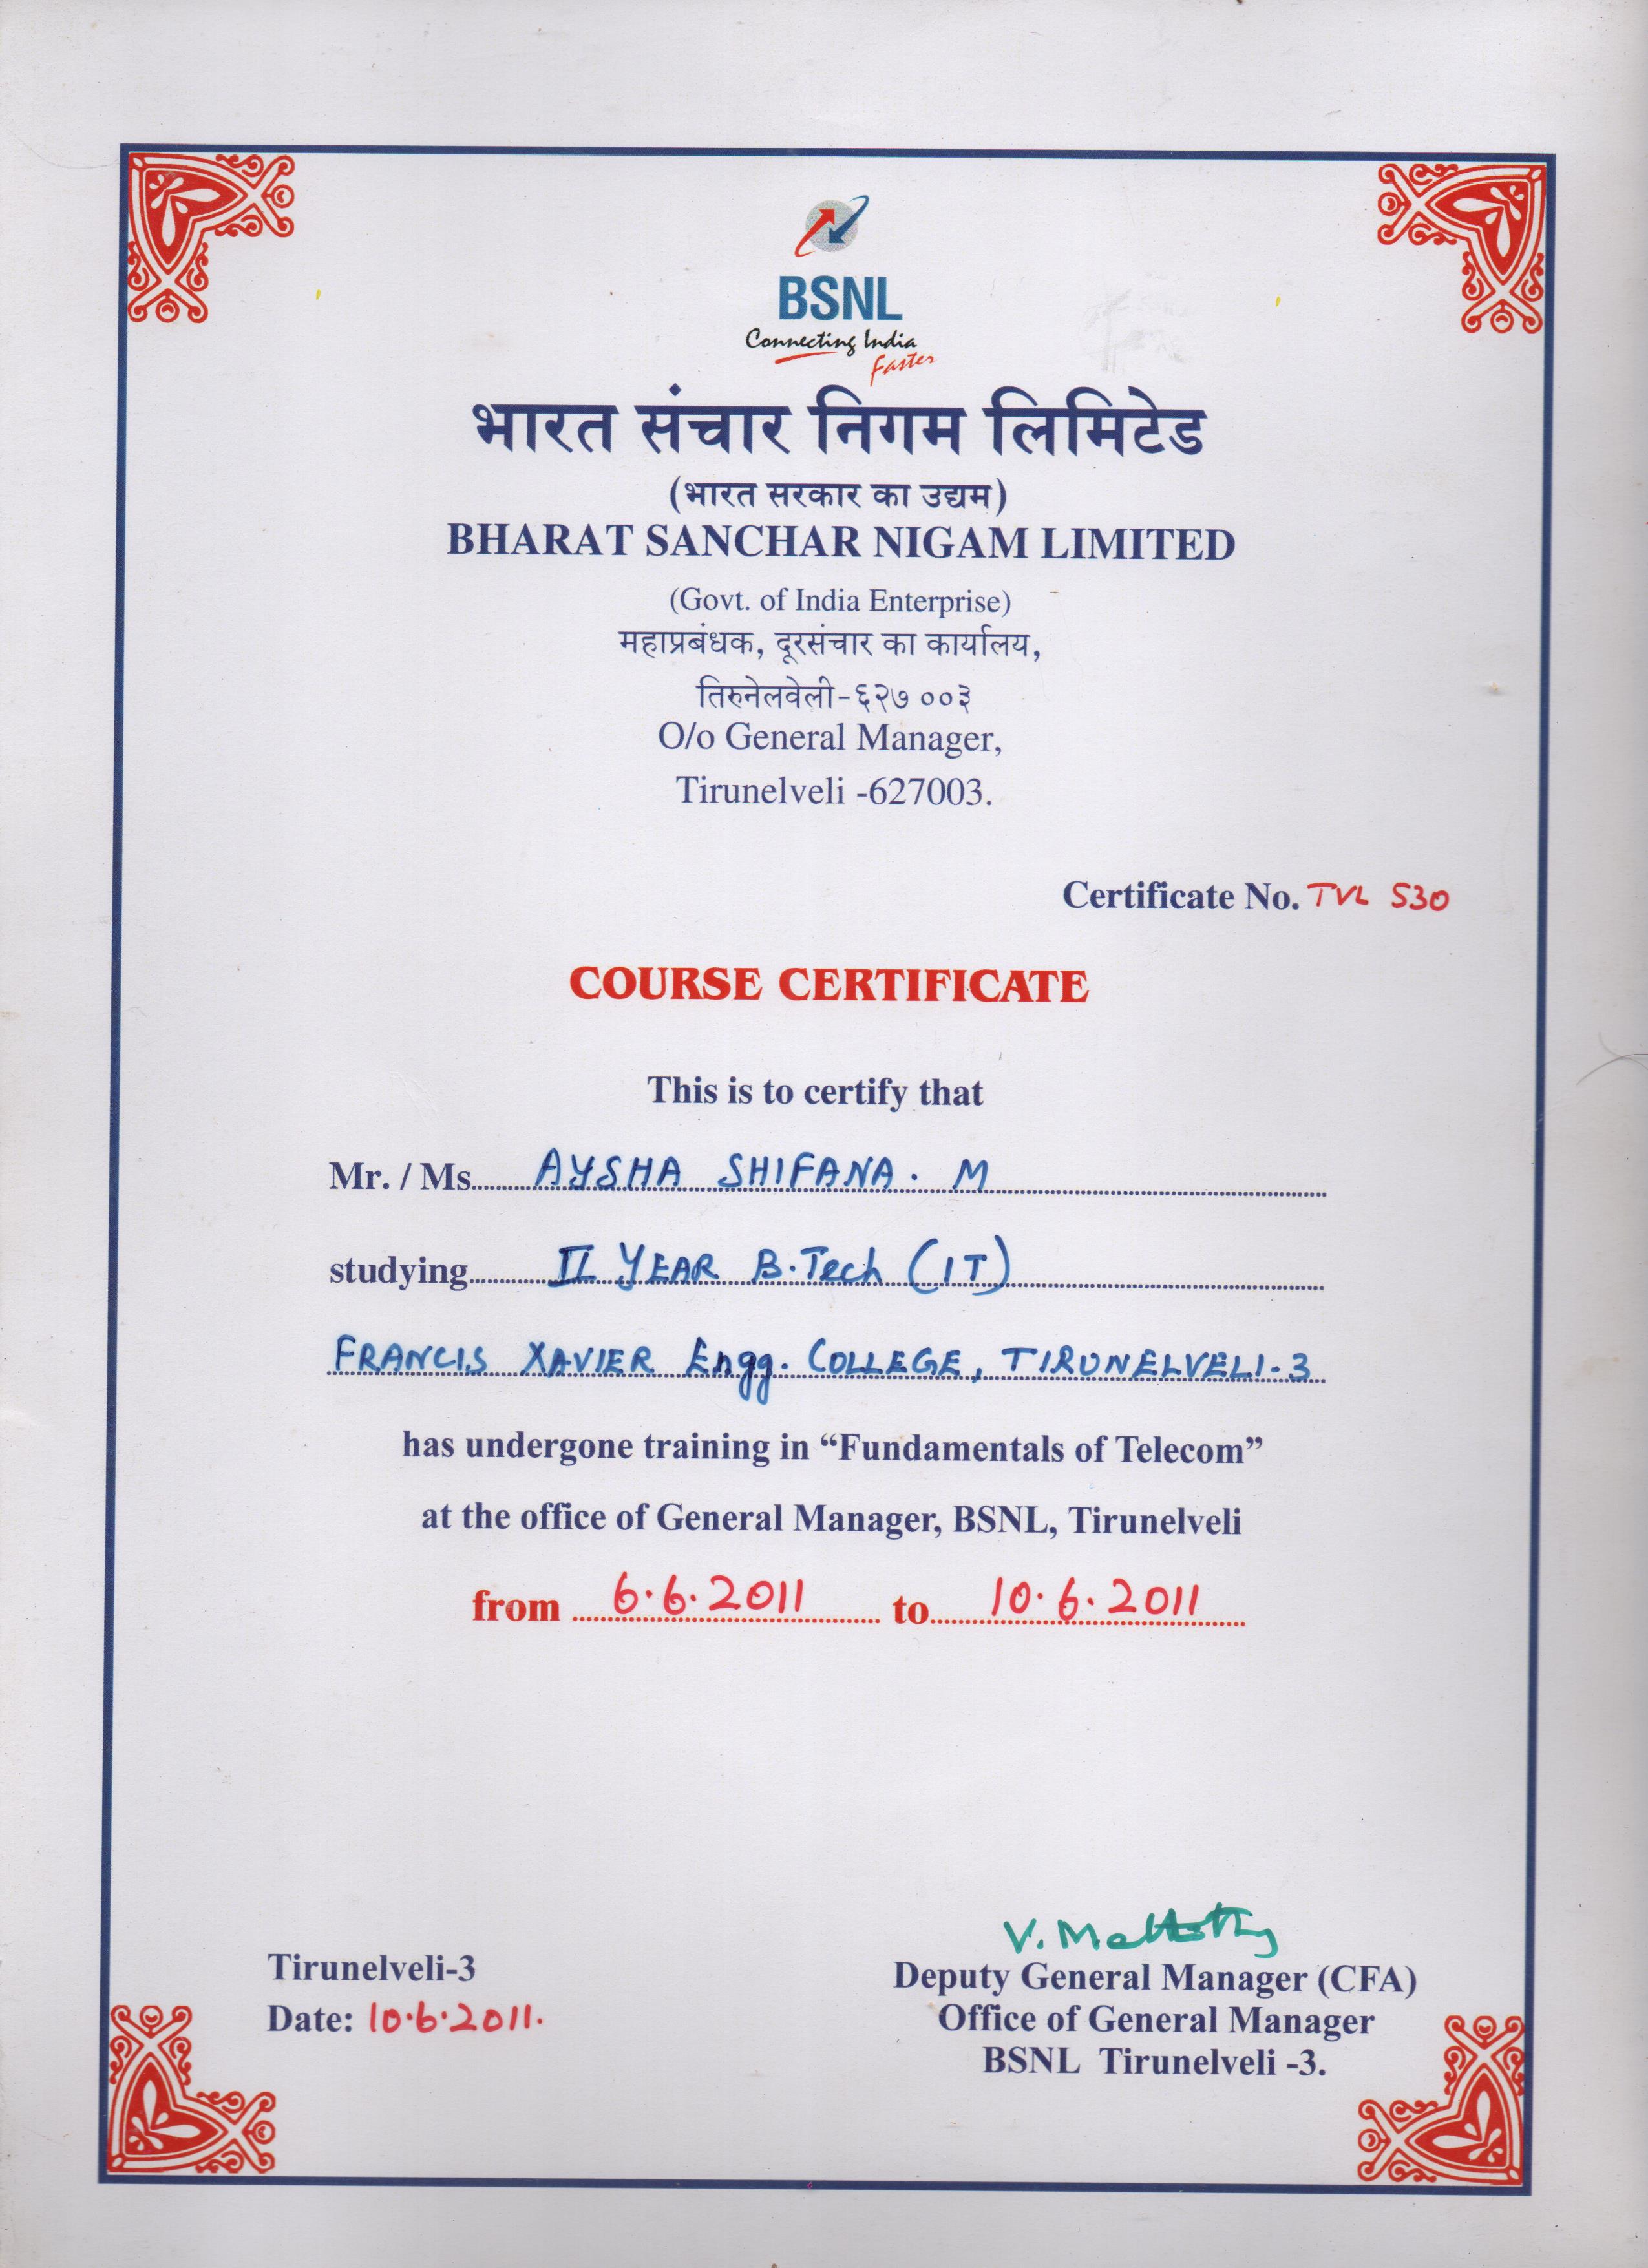 BSNL
Connecting India
faster
भारत संचार निगम लिमिटेड
(भारत सरकार का उद्यम)
BHARAT SANCHAR NIGAM LIMITED
(Govt. of India Enterprise)
महाप्रबंधक, दूरसंचार का कार्यालय,
तिरुनेलवेली-६२७ ००३
O/o General Manager,
Tirunelveli -627003.
Certificate No. TVL 530
COURSE CERTIFICATE
This is to certify that
Mr. / Ms. AYSHA SHIFANA. M
studying II YEAR B.Tech (IT)
FRANCIS XAVIER Engg. COLLEGE, TIRUNELVELI-3
has undergone training in “Fundamentals of Telecom”
at the office of General Manager, BSNL, Tirunelveli
from 6.6.2011 to 10.6.2011
V.
Tirunelveli-3
Deputy General Manager (CFA)
Date: 10.6.2011.
Office of General Manager
BSNL Tirunelveli -3.